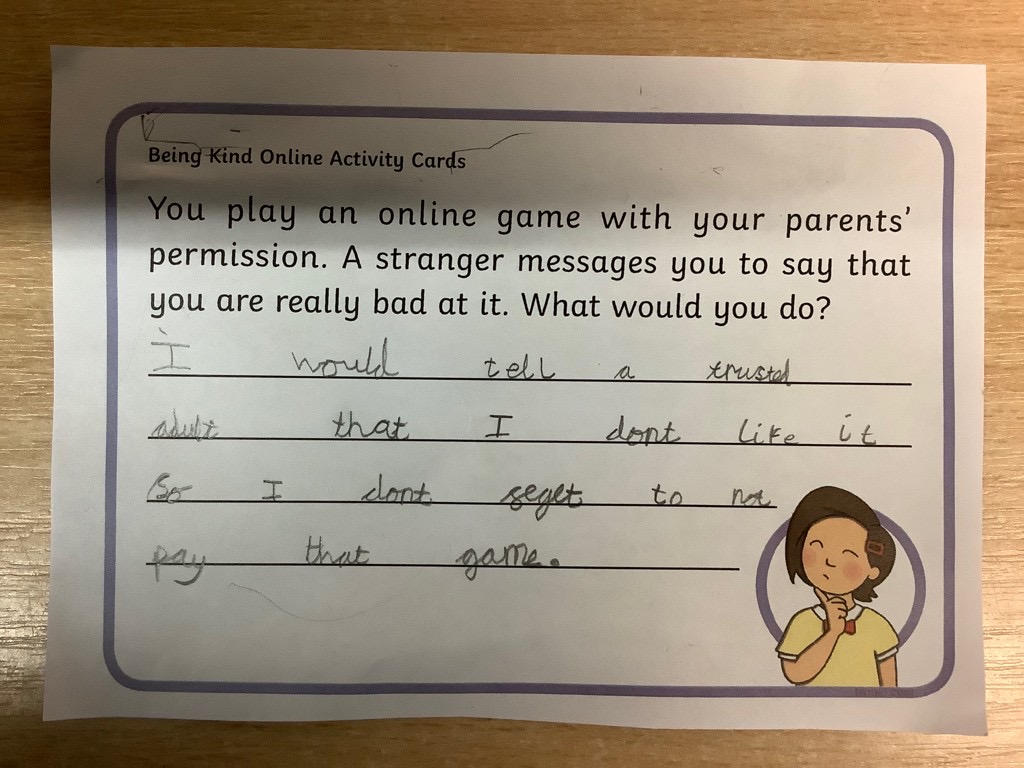 Being Kind Online Activity Cards
You play an online game with your parents'
permission. A stranger messages you to say that
you are really bad at it. What would you do?
I would tell a trusted
adult that I dont like it
So I dont seget to not
pay that game.